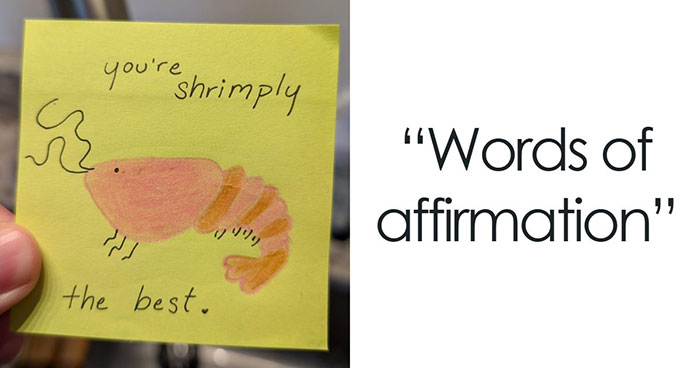 you're
shrimply
the best.
“Words of
affirmation”